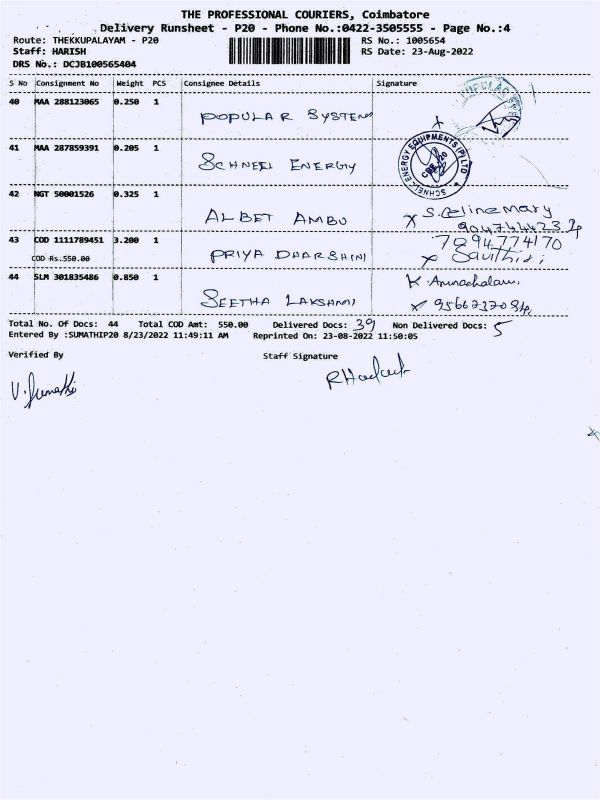 THE PROFESSIONAL COURIERS, Coimbatore
Delivery Runsheet - P20 - Phone No.:0422-3505555 - Page No.:4
Route: THEKKUPALAYAM - P20 RS No.: 1005654
Staff: HARISH RS Date: 23-Aug-2022
DRS No.: DCJB100565404
S No Consignment No Weight PCS Consignee Details Signature
40 MAA 288123065 0.250 1 POPULAR SYSTEM
41 MAA 287859391 0.205 1 SCHNEEL ENERGY
SCHNEIL ENERGY EQUIPMENTS (P) LTD
CBE-20
42 NGT 50001526 0.325 1 ALBET AMBU X S. Celine mary
43 COD 1111789451 3.200 1 PRIYA DHARSHINI 7094774170
COD Rs.550.00
44 SLM 301835486 0.850 1 SEETHA LAKSHMI K. Arunachalam
Total No. Of Docs: 44 Total COD Amt: 550.00 Delivered Docs: 39 Non Delivered Docs: 5
Entered By :SUMATHIP20 8/23/2022 11:49:11 AM Reprinted On: 23-08-2022 11:50:05
Verified By Staff Signature
V. Sumathi